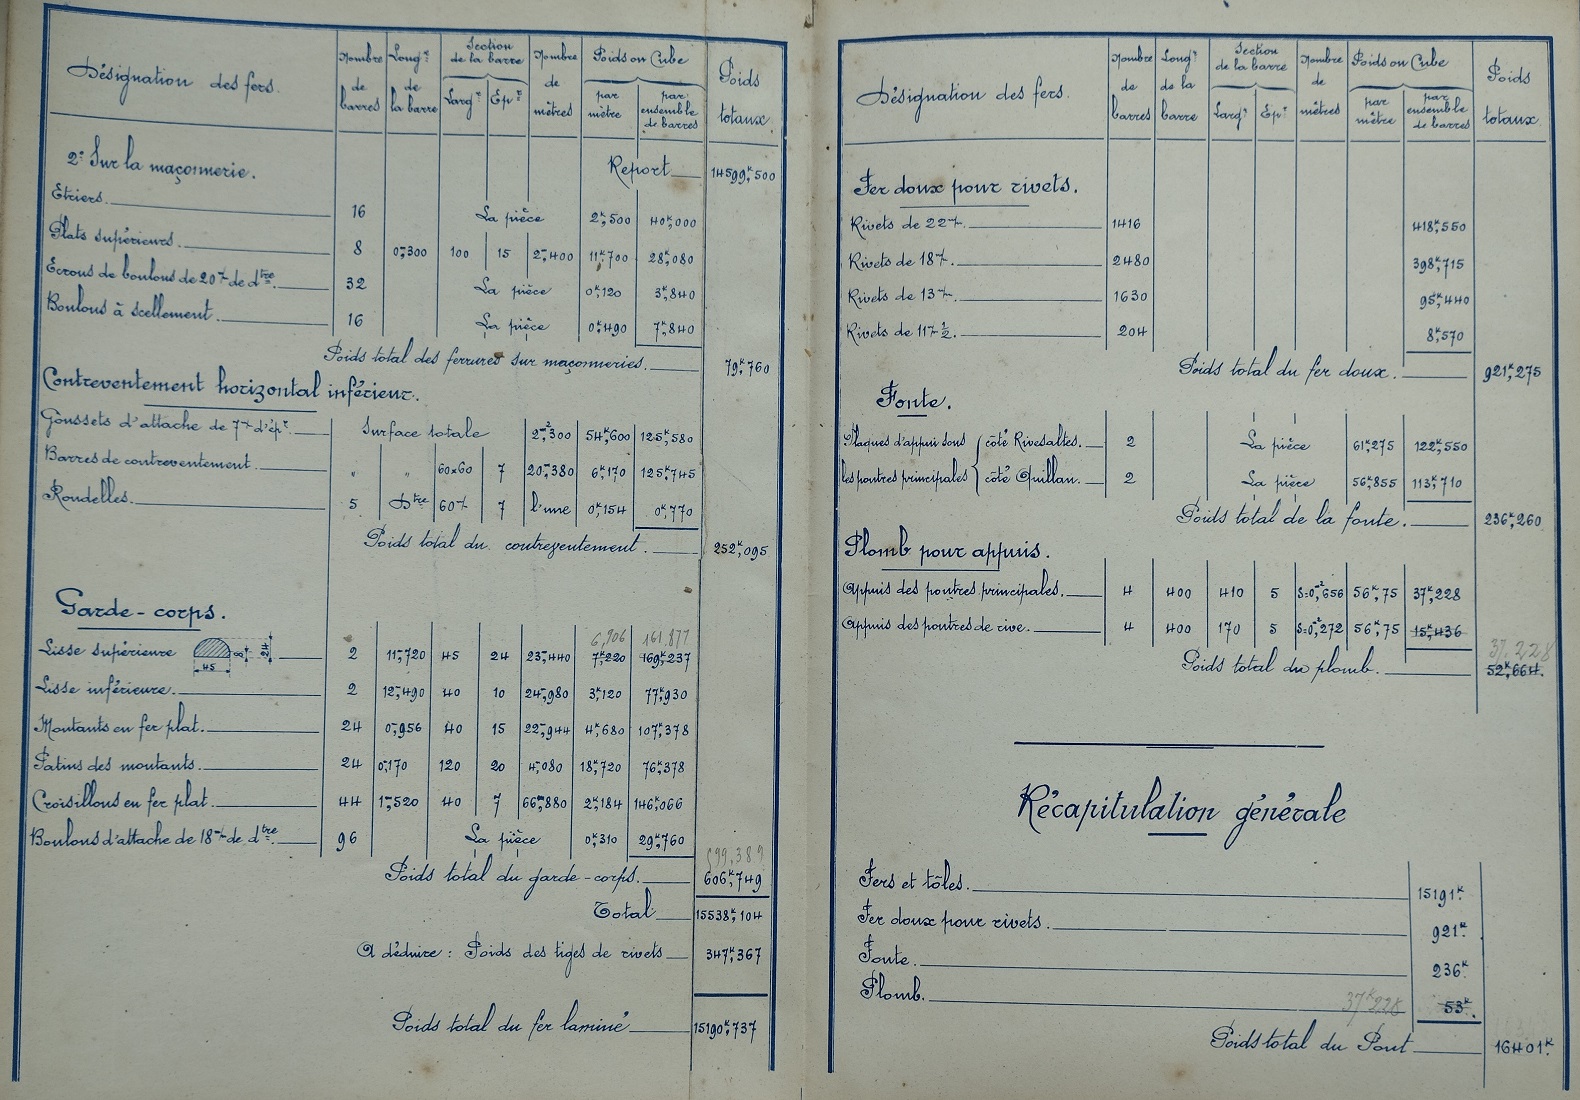 Désignation des fers.
Nombre de barres
Long.r de la barre
Section de la barre
Larg.r
Ep.r
Nombre de mètres
Poids ou Cube
par mètre
par ensemble de barres
Poids totaux.
2° Sur la maçonnerie.
Report 14599k,500
Etriers. 16 La pièce 2k,500 40k,000
Plats supérieurs. 8 0m,300 100 15 2m,400 11k,700 28k,080
Ecrous de boulons de 20m/m de dtre. 32 La pièce 0k,120 3k,840
Boulons à scellement. 16 La pièce 0k,490 7k,840
Poids total des ferrures sur maçonneries. 79k,760
Contreventement horizontal inférieur.
Goussets d'attache de 7m/m d'épr. Surface totale 2m²,300 54k,600 125k,580
Barres de contreventement. " " 60x60 7 20m,380 6k,170 125k,745
Rondelles. 5 Dtre 60m/m 7 l'une 0k,154 0k,770
Poids total du contreventement. 252k,095
Garde-corps.
6,906 161,877
Lisse supérieure 45 8 24 2 11m,720 45 24 23m,440 7k,220 169k,237
Lisse inférieure. 2 12m,490 40 10 24m,980 3k,120 77k,930
Montants en fer plat. 24 0m,956 40 15 22m,944 4k,680 107k,378
Patins des montants. 24 0m,170 120 20 4m,080 18k,720 76k,378
Croisillons en fer plat. 44 1m,520 40 7 66m,880 2k,184 146k,066
Boulons d'attache de 18m/m de dtre. 96 La pièce 0k,310 29k,760
599,389
Poids total du garde-corps. 606k,749
Total 15538k,104
A déduire : Poids des tiges de rivets 347k,367
Poids total du fer laminé 15190k,737
Désignation des fers.
Nombre de barres
Long.r de la barre
Section de la barre
Larg.r
Ep.r
Nombre de mètres
Poids ou Cube
par mètre
par ensemble de barres
Poids totaux.
Fer doux pour rivets.
Rivets de 22m/m. 1416 418k,550
Rivets de 18m/m. 2480 398k,715
Rivets de 13m/m. 1630 95k,440
Rivets de 11m/m ½. 204 8k,570
Poids total du fer doux. 921k,275
Fonte.
Plaques d'appui sous côté Rivesaltes. 2 La pièce 61k,275 122k,550
les poutres principales côté Quillan. 2 La pièce 56k,855 113k,710
Poids total de la fonte. 236k,260
Plomb pour appuis.
Appuis des poutres principales. 4 400 410 5 S=0m²,656 56k,75 37k,228
Appuis des poutres de rive. 4 400 170 5 S=0m²,272 56k,75 15k,436
37,228
Poids total du plomb. 52k,664.
Récapitulation générale
Fers et tôles. 15191k
Fer doux pour rivets. 921k
Fonte. 236k
Plomb. 37k228 53k.
Poids total du Pont 16401k